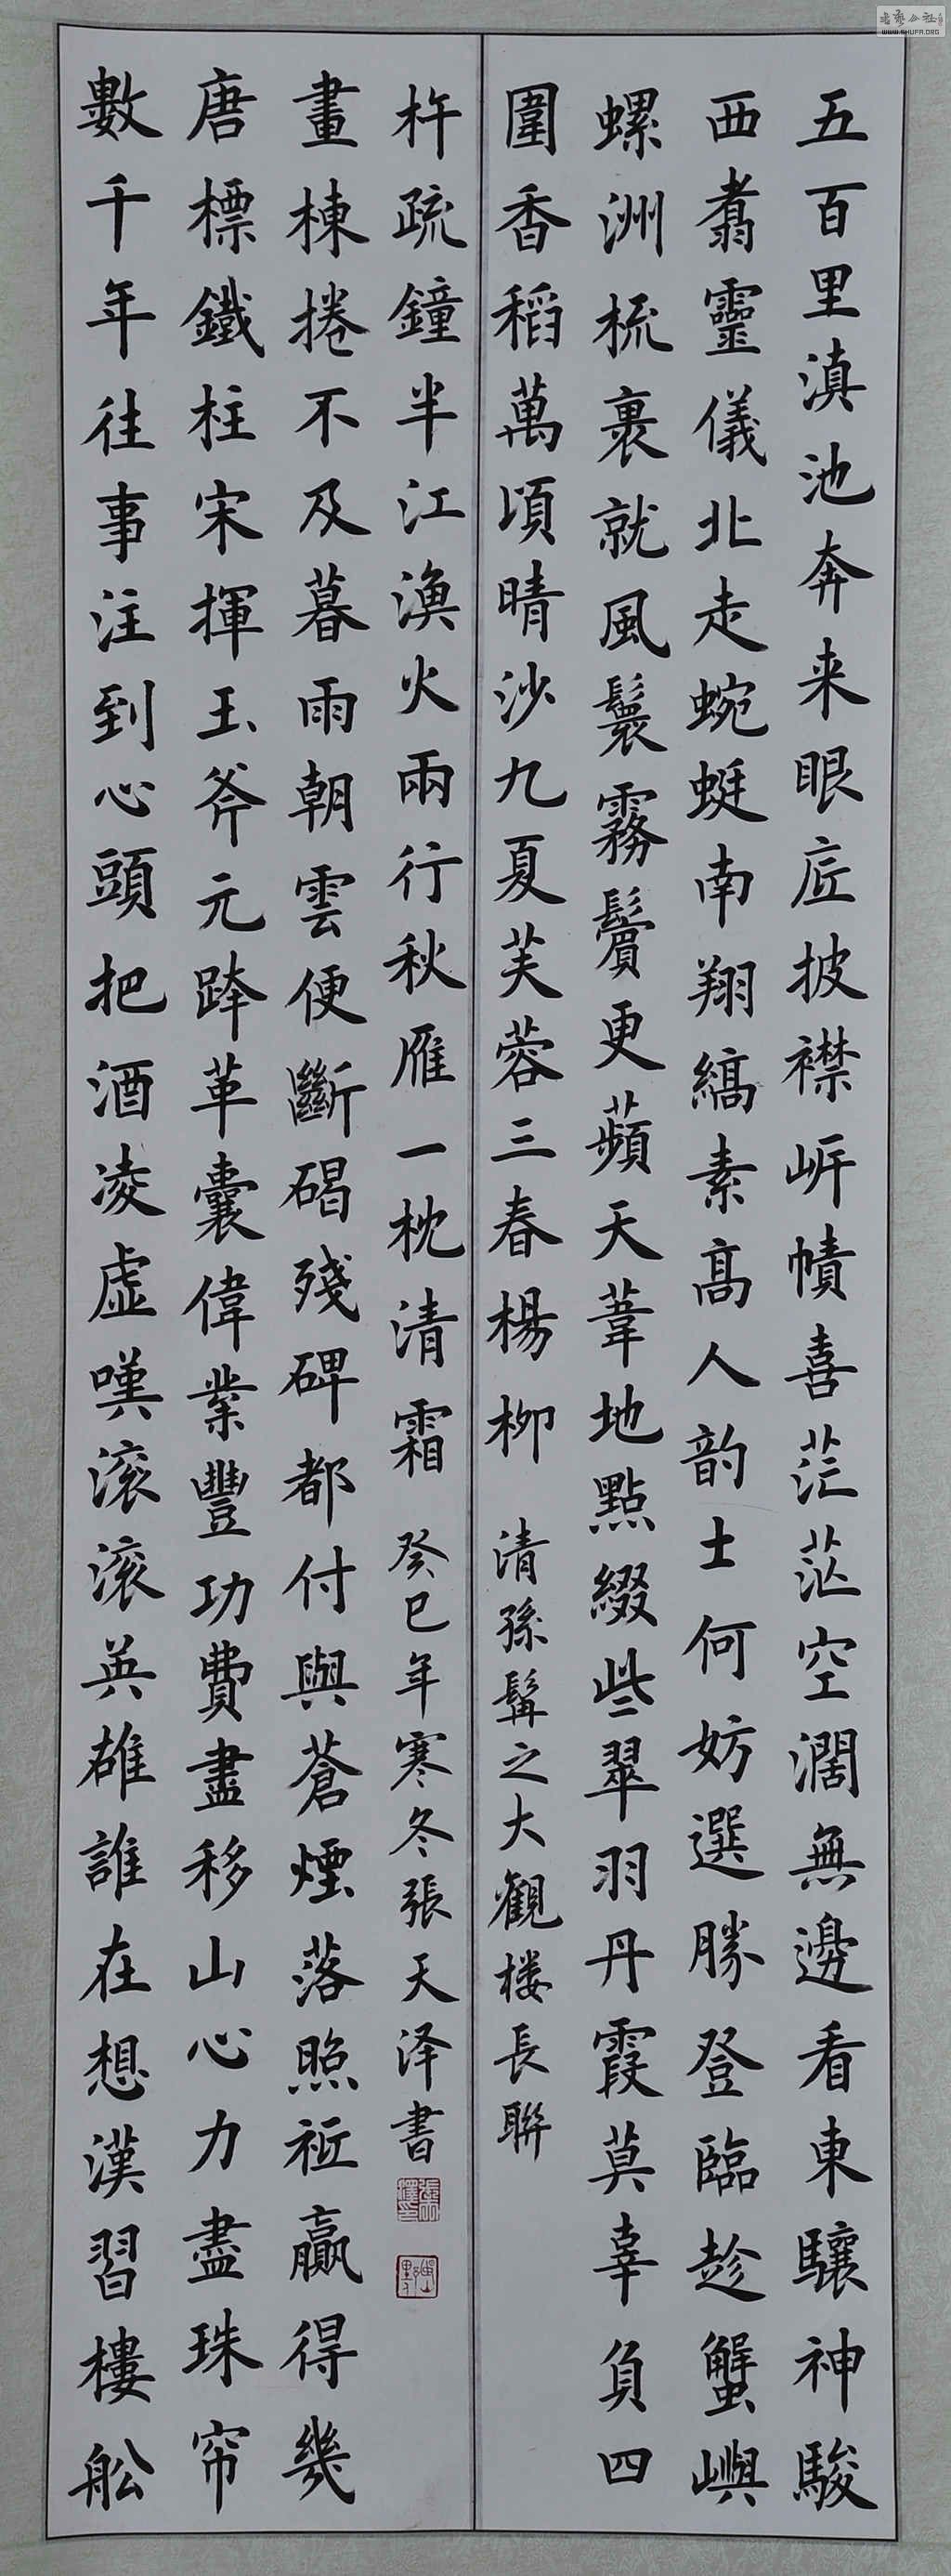 五百里滇池奔来眼底披襟岍幘喜茫茫空濶無邊看東驤神駿
西翥靈儀北走蜿蜒南翔縞素高人韵士何妨選勝登臨趁蟹嶼
螺洲梳裹就風鬟霧鬢更蘋天葦地點綴些翠羽丹霞莫辜負四
圍香稻萬頃晴沙九夏芙蓉三春楊柳 清孫髯之大觀楼長聯
數千年往事注到心頭把酒凌虛嘆滚滚英雄誰在想漢習樓舩
唐標鐵柱宋揮玉斧元跨革囊偉業豐功費盡移山心力盡珠帘
畫棟捲不及暮雨朝雲便斷碣殘碑都付與蒼煙落照祗贏得幾
杵疏鐘半江漁火兩行秋雁一枕清霜 癸巳年寒冬張天泽書
WWW.SHUFA.ORG